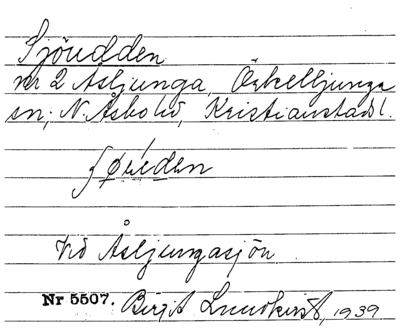 Sjöudden
nr 2 Åsljunga, Örkelljunga
sn; N. Åsbo hd, Kristianstads l.
Vid Åsljungasjön
Nr 5507. Birgit Lundkvist, 1939